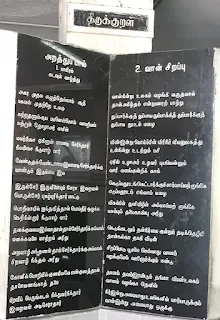 திருக்குறள்
அறத்துப் பால்
1. பாயிரம்
கடவுள் வாழ்த்து
அகர முதல எழுத்தெல்லாம் ஆதி
பகவன் முதற்றே உலகு
கற்றதனால் ஆய பயனென்கொல் வாலறிவன்
நற்றாள் தொழாஅர் எனின்
மலர்மிசை ஏகினான் மாணடி சேர்ந்தார்
நிலமிசை நீடுவாழ் வார்
வேண்டுதல்வேண்டாமை இலானடிசேர்ந்தார்க்கு
யாண்டும் இடும்பை இல
இருள்சேர் இருவினையும் சேரா இறைவன்
பொருள்சேர் புகழ்புரிந்தார் மாட்டு
பொறிவாயில் ஐந்தவித்தான் பொய்தீர் ஒழுக்க
நெறிநின்றார் நீடுவாழ் வார்
தனக்குவமை இல்லாதான்தாள்சேர்ந்தார்க்கல்லால்
மனக்கவலை மாற்றல் அரிது
அறவாழி அந்தணன்தாள் சேர்ந்தார்க்கல்லால்
பிறவாழி நீந்தல் அரிது
கோளில் பொறியில் குணமிலவே எண்குணத்தான்
தாளை வணங்காத் தலை
பிறவிப் பெருங்கடல் நீந்துவர் நீந்தார்
இறைவன் அடிசேரா தார்
2. வான் சிறப்பு
வான்நின்று உலகம் வழங்கி வருதலால்
தான்அமிழ்தம் என்றுணரற் பாற்று
துப்பார்க்குத் துப்பாய துப்பாக்கித் துப்பார்க்குத்
துப்பாய தூஉம் மழை
விண்இன்று பொய்ப்பின் விரிநீர் வியனுலகத்து
உள்நின்று உடற்றும் பசி
ஏரின் உழாஅர் உழவர் புயல்என்னும்
வாரி வளங்குன்றிக் கால்
கெடுப்பதூஉம் கெட்டார்க்குச் சார்வாய்மற் றாங்கே
எடுப்பதூஉம் எல்லாம் மழை
விசும்பின் துளிவீழின் அல்லால்மற் றாங்கே
பசும்புல் தலைகாண்பு அரிது
நெடுங்கடலும் தன்நீர்மை குன்றும் தடிந்தெழிலி
தான்நல்கா தாகி விடின்
சிறப்பொடு பூசனை செல்லாது வானம்
வறக்குமேல் வானோர்க்கும் ஈண்டு
தானம் தவம்இரண்டும் தங்கா வியன்உலகம்
வானம் வழங்கா தெனின்
நீர்இன்று அமையாது உலகெனின் யார்யார்க்கும்
வான்இன்று அமையாது ஒழுக்கு